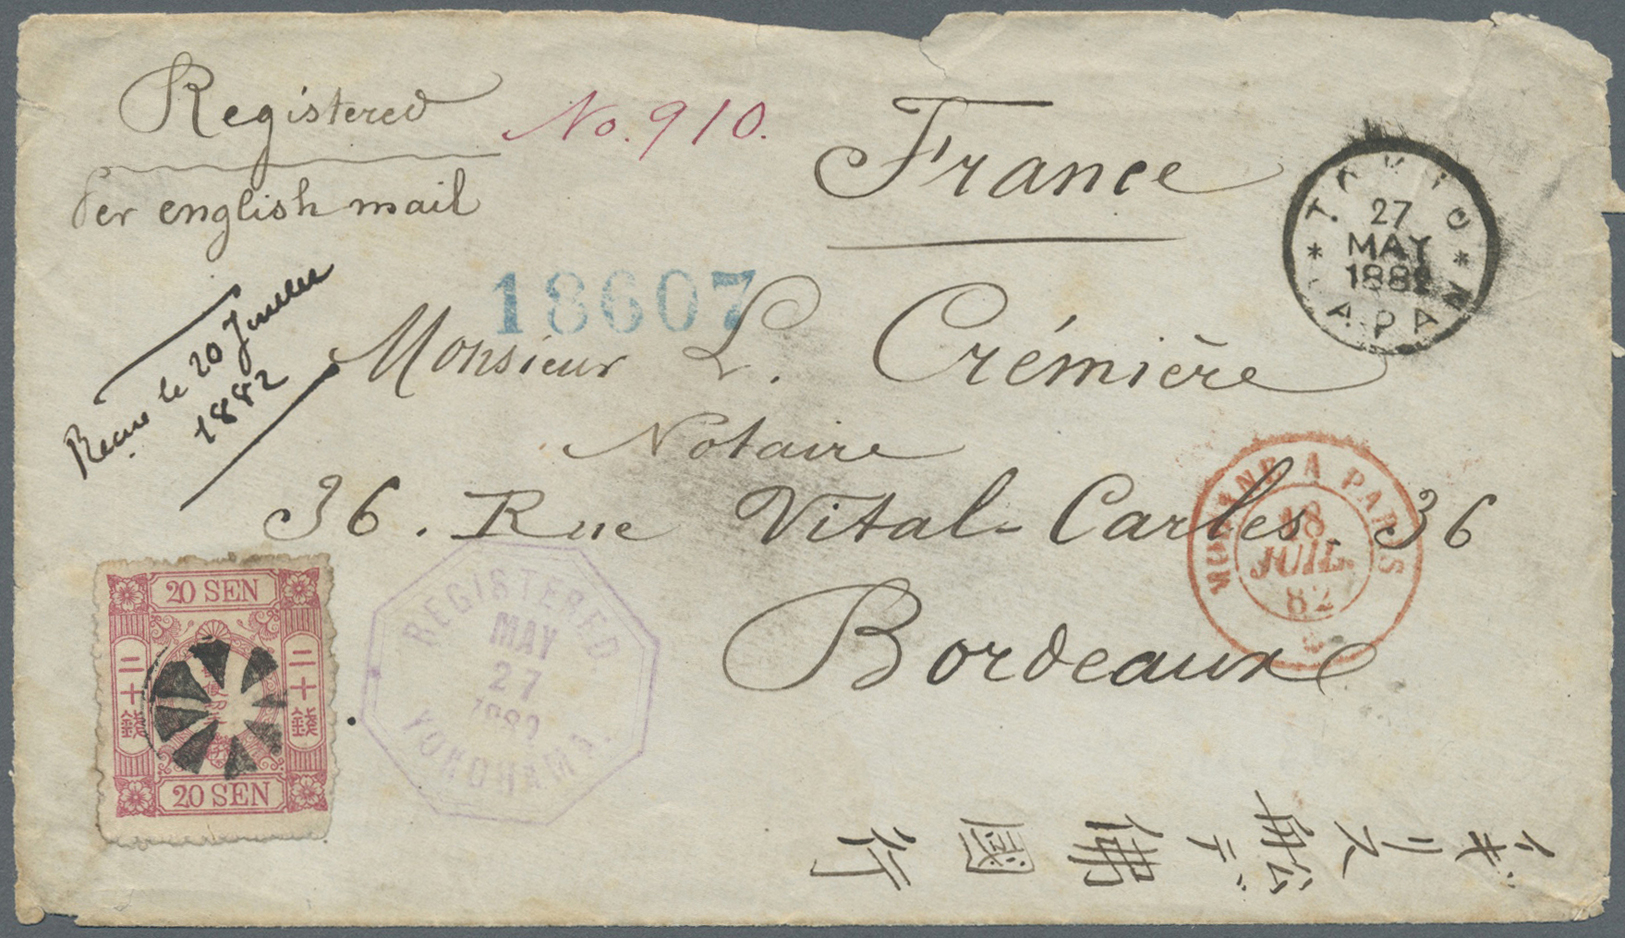 Registered
No. 910.
France
Per english mail
TOKIO
27
MAY
1882
JAPAN
18607
Reçue le 20 Juillet
1882
Monsieur L. Crémière
Notaire
36. Rue Vital-Carles. 36
Bordeaux
MODANE A PARIS
18
JUIL.
82
20 SEN
二十錢
二十錢
20 SEN
REGISTERED.
MAY
27
1882
YOKOHAMA.
イギリス船デ佛國行